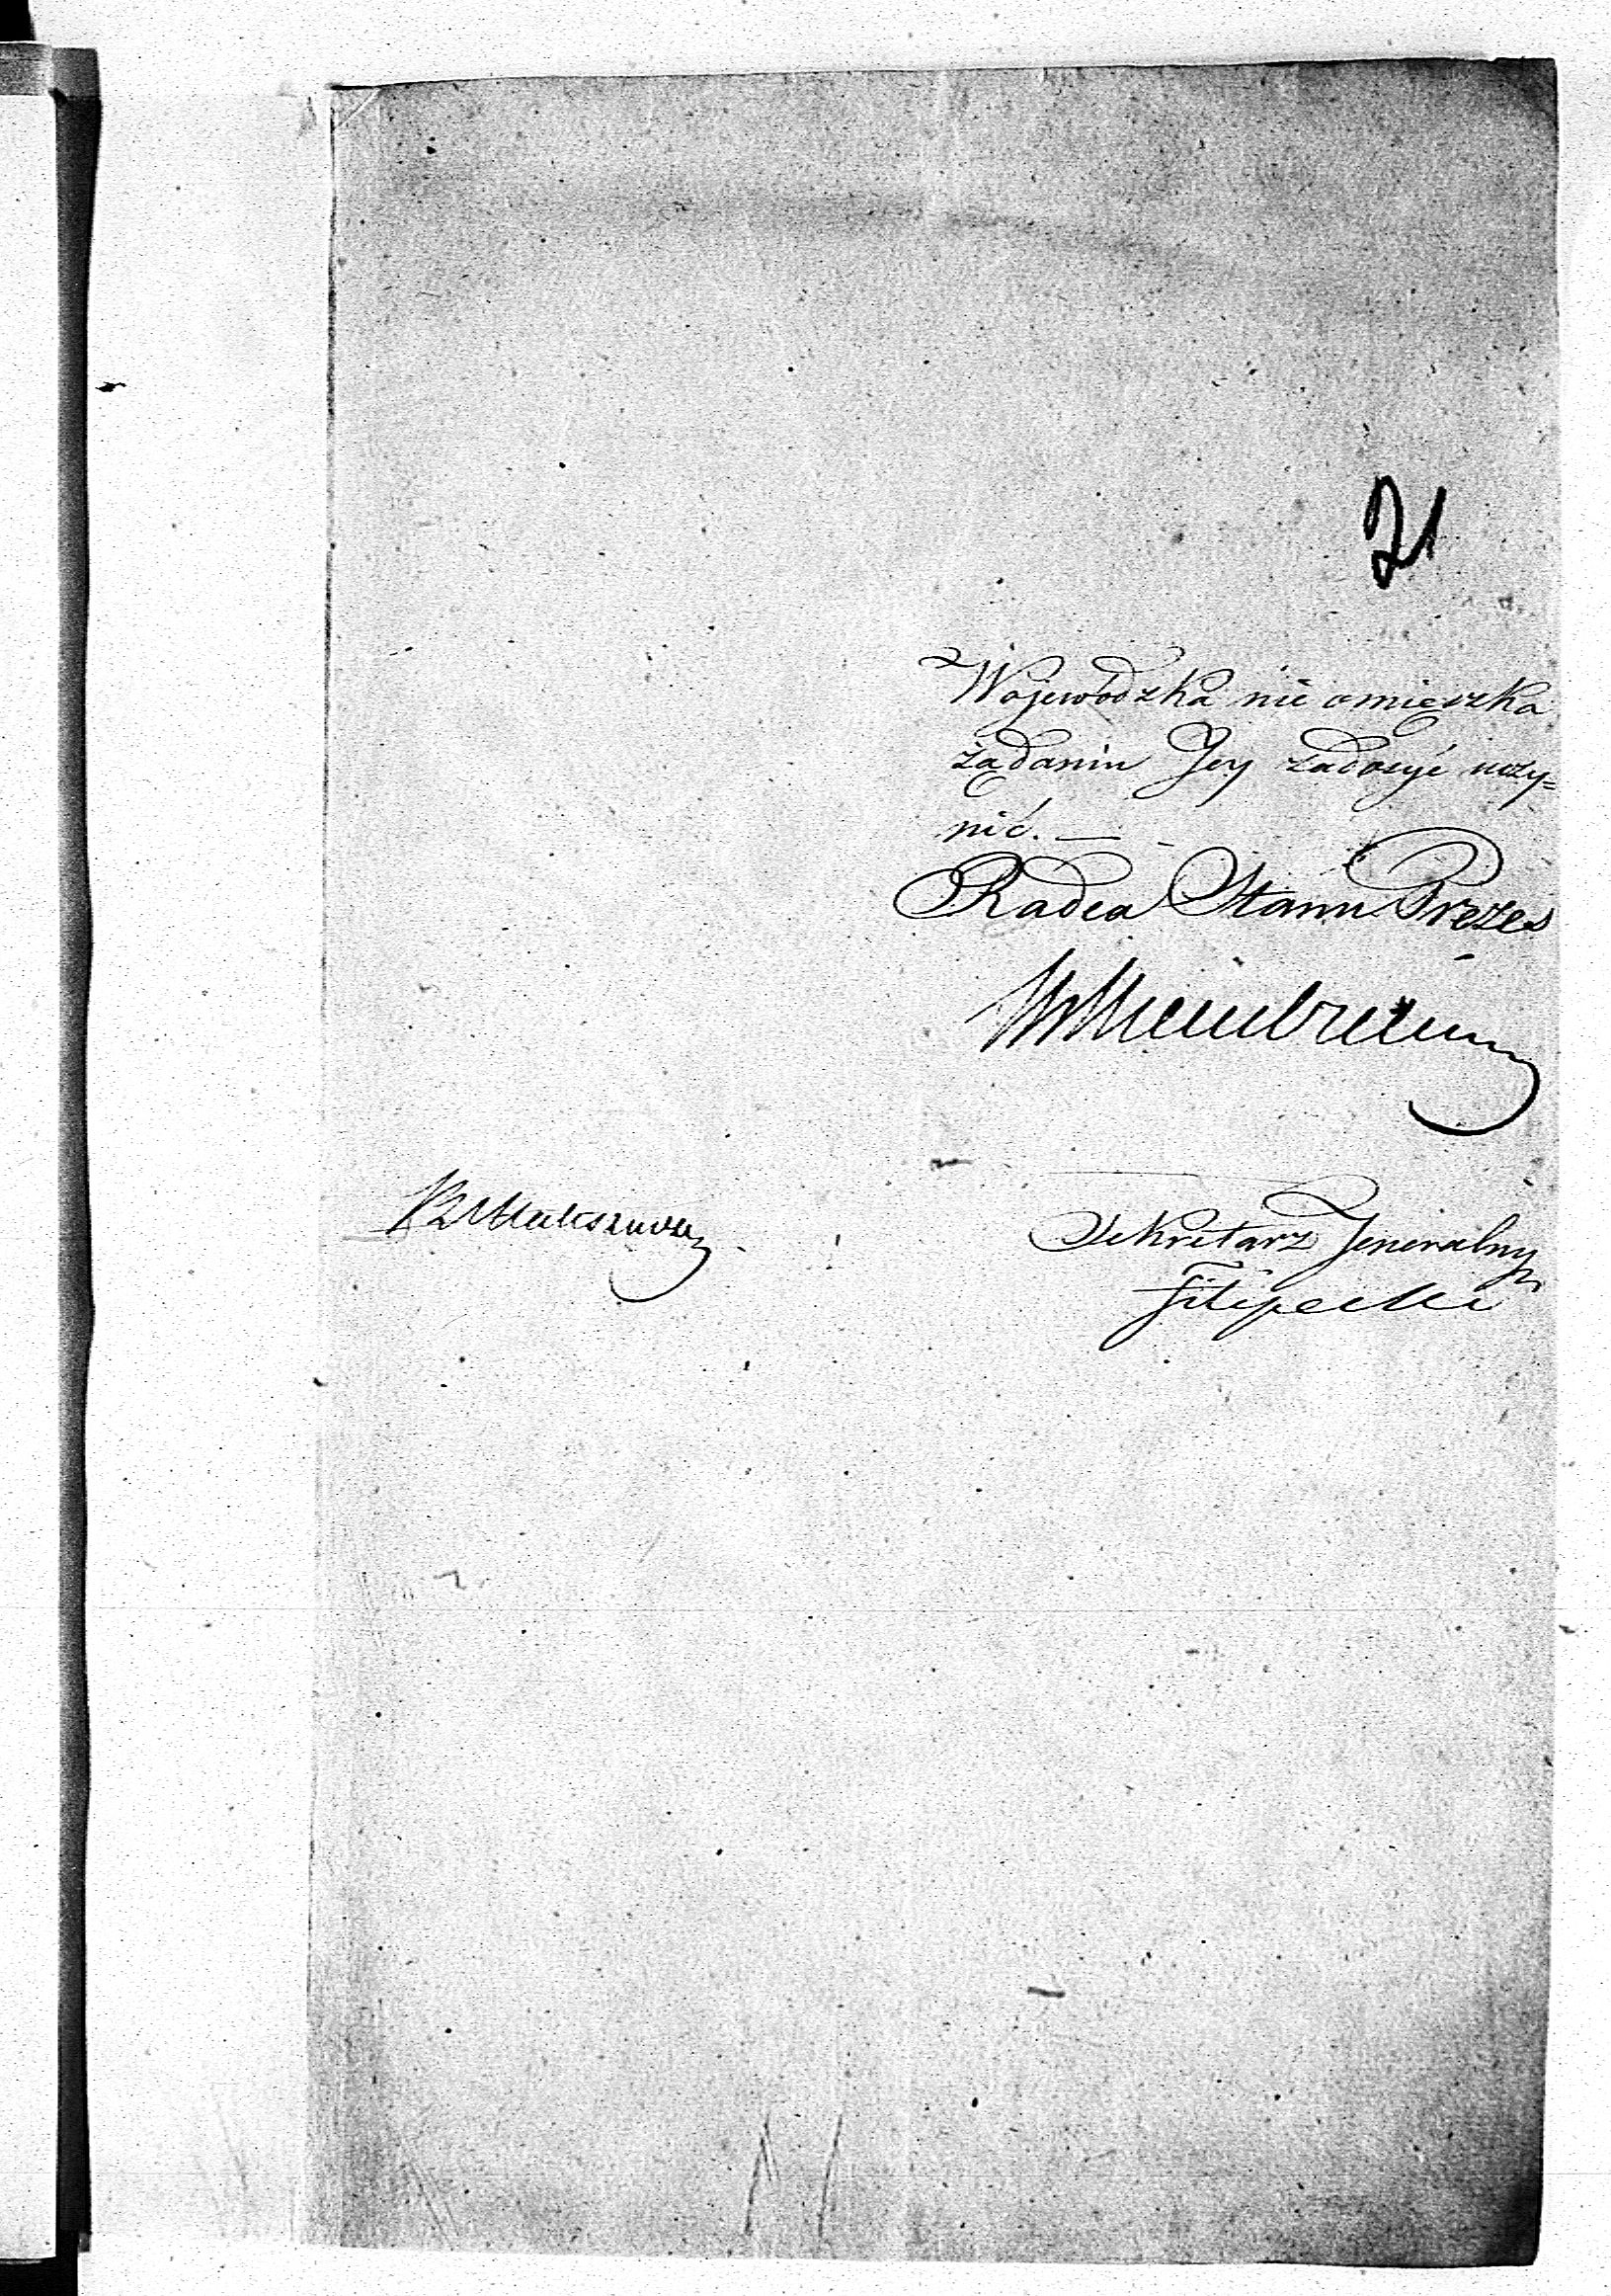 21
Wojewódzka nie omięszka
żądaniu Jey zadosyć uczy=
nić. —
Radca Stanu Prezes
Sekretarz Jeneralny
Filipecki